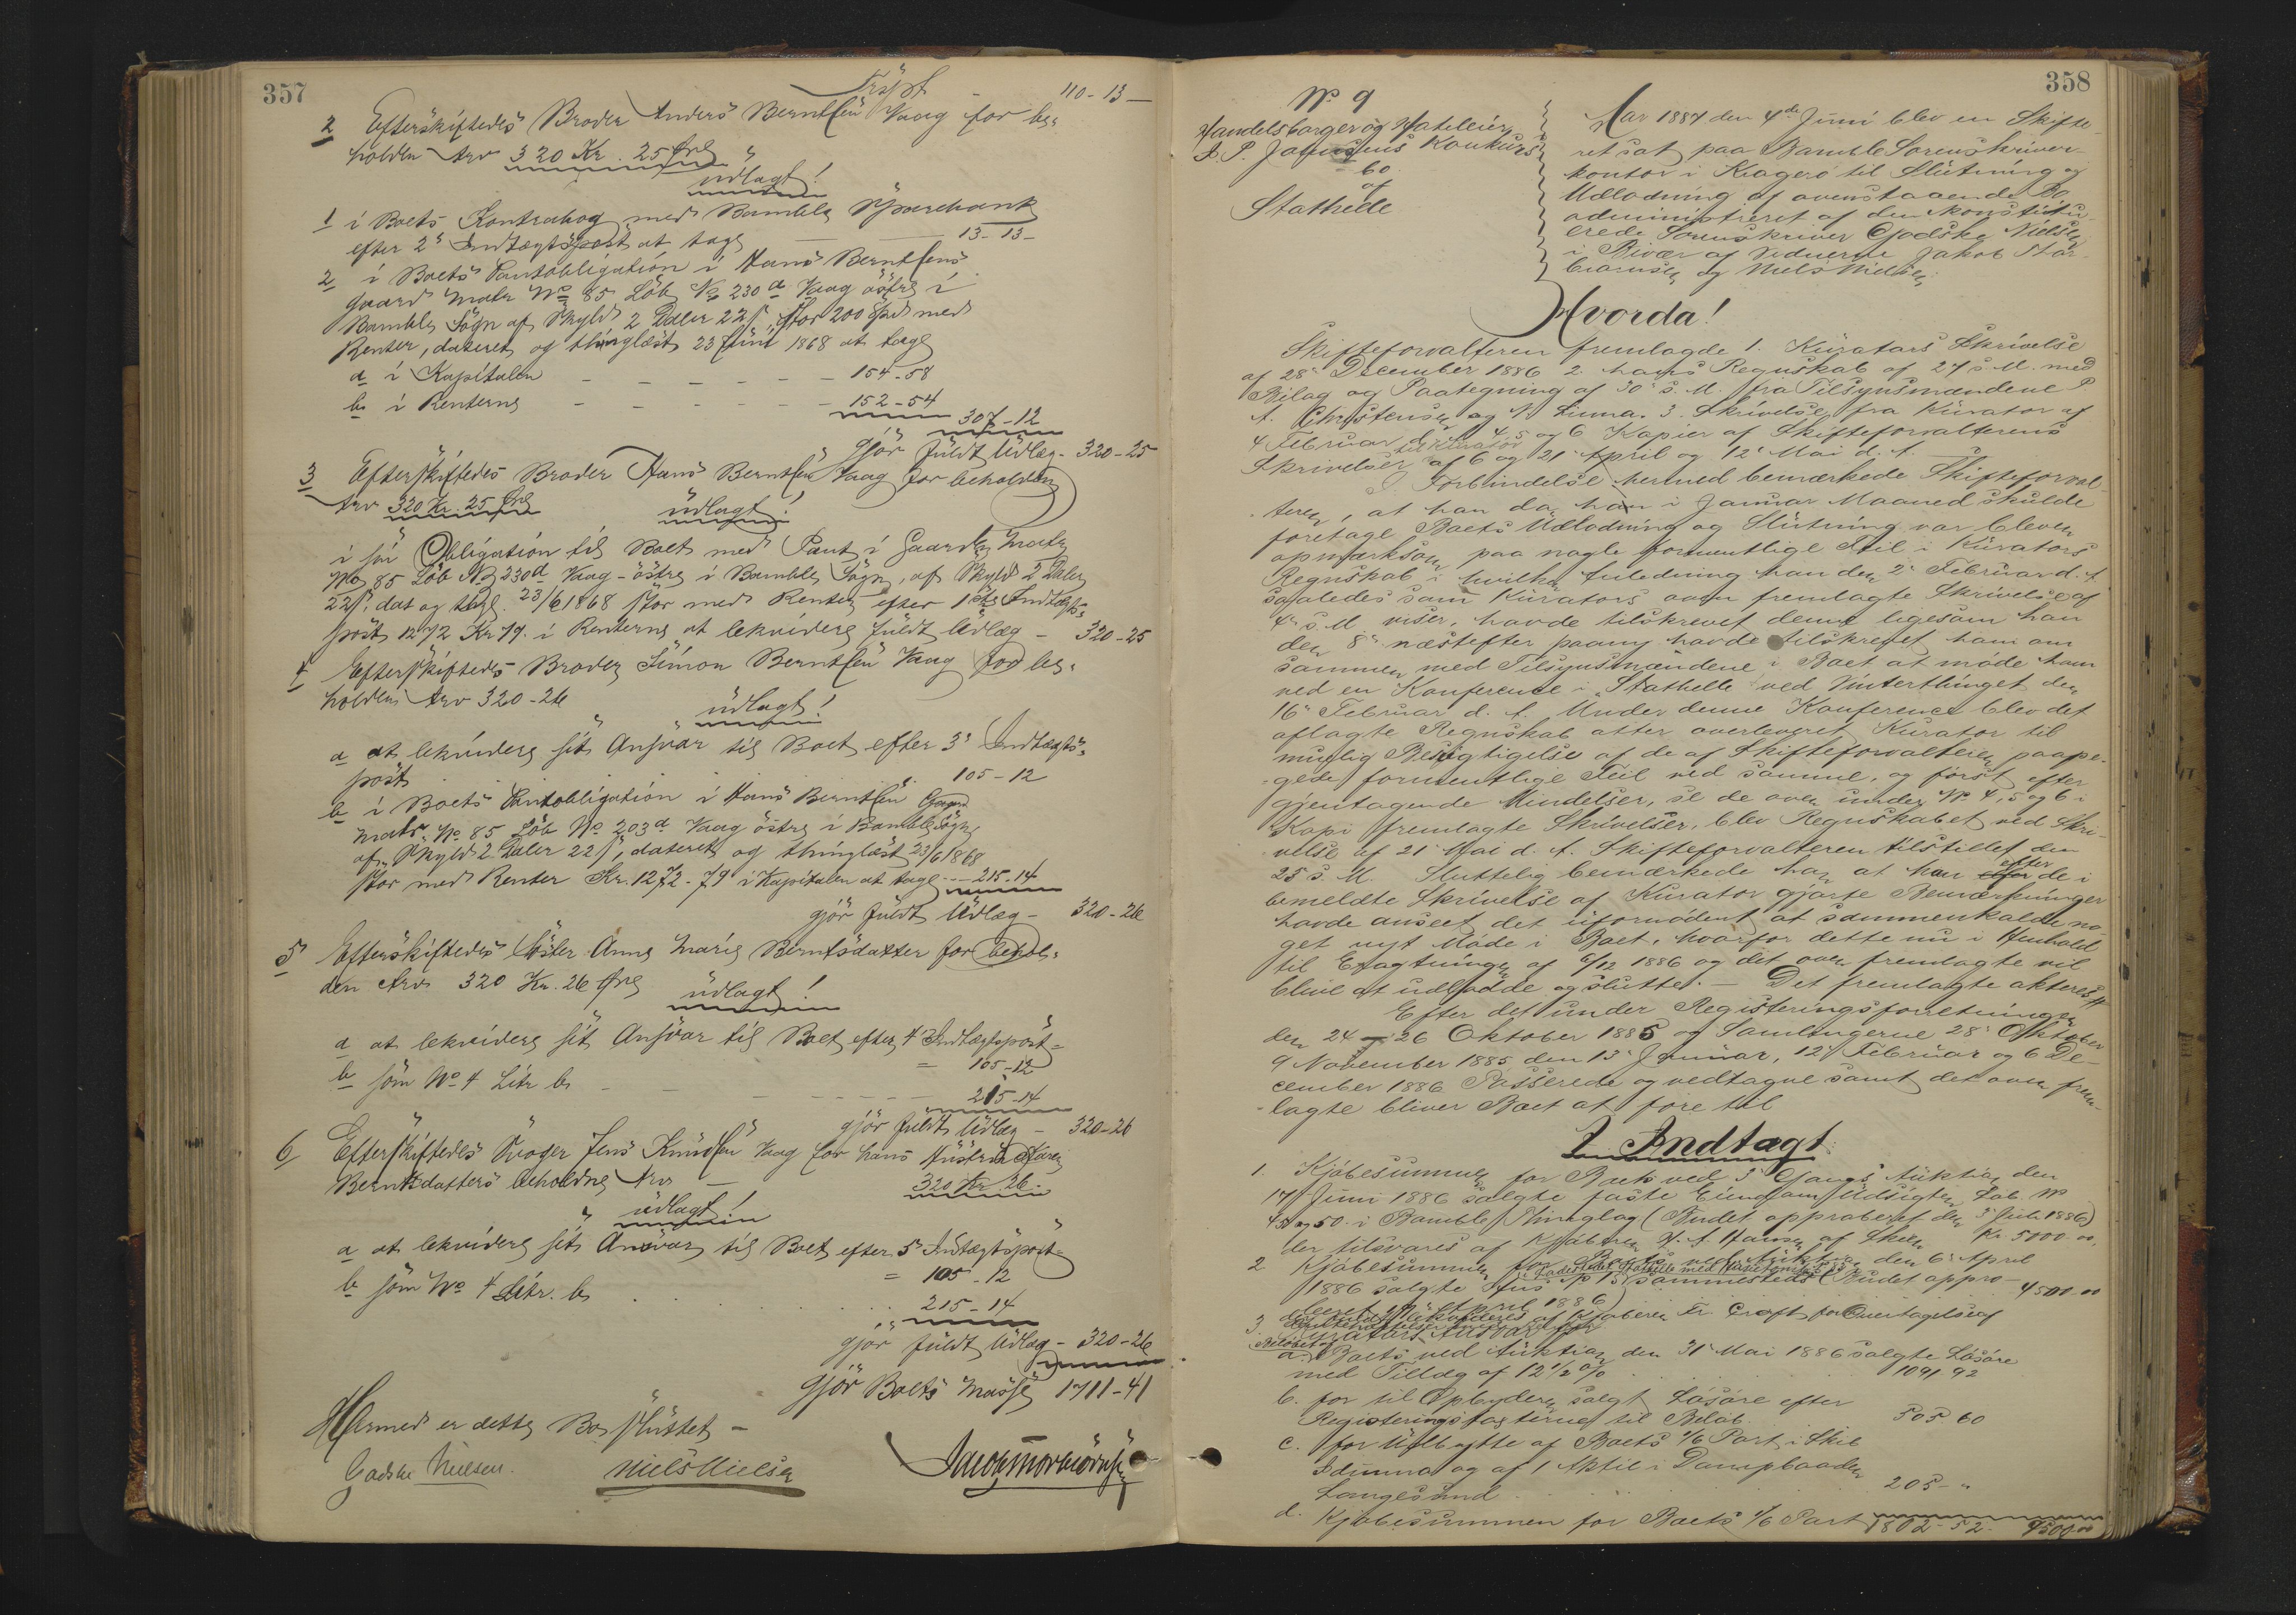 357
Trspt 110-13-
2 Efterskiftedes Broder Anders Berntsen Vaag for be-
holden Arv 320 Kr. 25 Øre
udlagt!
1 i Boets Kontrabog med Bamble Sparebank
efter 2' Indtægtspost at tage 13-13-
2 i Boets Pantobligation i Hans Berntsens
Gaard Matr No 85 Løb No 230 a Vaag østre i
Bamble Sogn af Skyld 2 Daler 22 s, stor 200 Spd med
Renter, dateret og thinglæst 23 Juni 1868 at tage
a i Kapitalen - - - - - - 154-58
b i Renterne - - - - - - 152-54
307-12
gjør fuldt Udlæg - 320-25
3 Efterskiftedes Broder Hans Berntsen Vaag for beholden
Arv 320 Kr. 25 Øre
udlagt!
i sin Obligation til Boet med Pant i Gaarden Matr
No 85 Løb No 230d Vaag-østre i Bamble Sogn, af Skyld 2 Daler
22 s, dat og thgl. 23/6 1868 stor med Renter efter 1ste Indtægts-
post 1272 Kr 79. i Renterne at lekvidere fuldt Udlæg - 320-25
4 Efterskiftedes Broder Simon Berntsen Vaag for be-
holden Arv 320-26
udlagt!
a at lekvidere sit Ansvar til Boet efter 3' Indtægts-
post 105-12
b i Boets Pantobligation i Hans Berntsen Gaard
Matr. No 85 Løb No 203d Vaag østre i Bamble Sogn
af Skyld 2 Daler 22 s, dateret og thinglæst 23/6 1868
stor med Renter Kr. 1272-79 i Kapitalen at tage - 215-14
gjør fuldt Udlæg - 320-26
5 Efterskiftedes Søster Anne Marie Berntsdatter for behol-
den Arv 320 Kr. 26 Øre
udlagt!
a at lekvidere sit Ansvar til Boet efter 4' Indtægtspost -
= 105-12
b som No 4 Litr b - - - - - - 215-14
gjør fuldt Udlæg - 320-26
6 Efterskiftedes Svoger Jens Knudsen Vaag for hans Hustru
Berntsdatters beholdne Arv - 320 Kr 26.
udlagt!
a at lekvidere sit Ansvar til Boet efter 5' Indtægtspost -
= 105-12
b som No 4 Litr. b . . . . . . 215-14
gjør fuldt Udlæg - 320-26
Gjør Boets Masse 1711-41
Hermed er dette Bo sluttet -
Godske Nielsen. Niels Nielsen
358
No 9
Handelsborger og
J. P. Konkurs
bo
af
Stathelle
Aar 1887 den 4de Juni blev en Skifte-
ret sat paa Bamble Sorenskriver-
kontor i Kragerø til Slutning og
Udlodning af ovenstaaende Bo
administreret af den konstitu-
erede Sorenskriver Godske Nielsen
i Bivær af Vidnerne Jakob
og Niels Nielsen
Hvorda!
Skifteforvalteren fremlagde 1. Kurators Skrivelse
af 28' December 1886 2. hans Regnskab af 27' s. M. med
Bilag og Paategning af 30' s. M. fra Tilsynsmændene P
A. Christensen og N. Linna. 3. Skrivelse fra Kurator af
4 Februar d. A. 4, 5 og 6 Kopier af Skifteforvalterens
Skrivelser til Kurator af 6 og 21' April og 12' Mai d. A.
I Forbindelse hermed bemærkede Skifteforval-
teren, at han da han i Januar Maaned skulde
foretage Boets Udlodning og Slutning var bleven
opmærksom paa nogle formentlige Feil i Kurators
Regnskab i hvilken Anledning han den 2' Februar d. A.
saaledes som Kurators oven fremlagte Skrivelse af
4' s. M. viser, havde tilskrevet denne ligesom han
den 8' næstefter paany havde tilskrevet ham om
sammen med Tilsynsmændene i Boet at møde ham
ved en Konference i Stathelle ved Vinterthinget den
16' Februar d. A. Under denne Konference blev det
aflagte Regnskab atter overleveret Kurator til
mulig Besigtigelse af de af Skifteforvalteren paape-
gede formentlige Feil ved samme, og først efter
gjentagende Mindelser, se de oven under No 4, 5 og 6 i
Kopi fremlagte Skrivelser, blev Regnskabet ved Skri-
velse af 21' Mai d. A. Skifteforvalteren tilstillet den
25' s. M. Sluttelig bemærkede han at han efter de i
bemeldte Skrivelse af Kurator gjorte Bemærkninger
havde anseet det ufornødent at sammenkalde no-
get nyt Møde i Boet, hvorfor dette nu i Henhold
til Eragtningen af 6/12 1886 og det oven fremlagte vil
blive at udlodde og slutte. - Det fremlagte akteres
Efter det under Registeringsforretningen
den 24 - 26 Oktober 1885 og Samlingerne 28' Oktober
9 November 1885 den 13' Januar, 12' Februar og 6 De-
cember 1886 Passerede og vedtagne samt det oven frem-
lagte bliver Boet at føre til
I Indtægt
1. Kjøbesummen for Boets ved 3' Gangs Auktion den
17' Juni 1886 solgte faste Eiendom Udsigten Løb. No
og 50. i Bamble Thinglag (Budet approberet den 3' Juli 1886)
der tilsvares af Kjøberen H. A. Hansen af Skien Kr. 5000.00,
2 Kjøbesummen for Boets ved Auktion den 6' April
1886 solgte Hus No 15 sammesteds (Budet appro- 4500-00
beret April 1886)
3. Kurators Ansvar for
a. Boets ved Auktion den 31' Mai 1886 solgte Løsøre
med Tillæg af 12 1/2 % . . . . . 1091 92
b. for til Opbydere solgt Løsøre efter
Registeringstaxterne til Beløb 505 60
c. for Udbytte af Boets 1/6 Part i Skib
Idunna og af 1 Aktie i Dampbaaden
Langesund . . . . . 205-"
d. Kjøbesummen for Boets 1/6 Part 1802-52. 9500.00